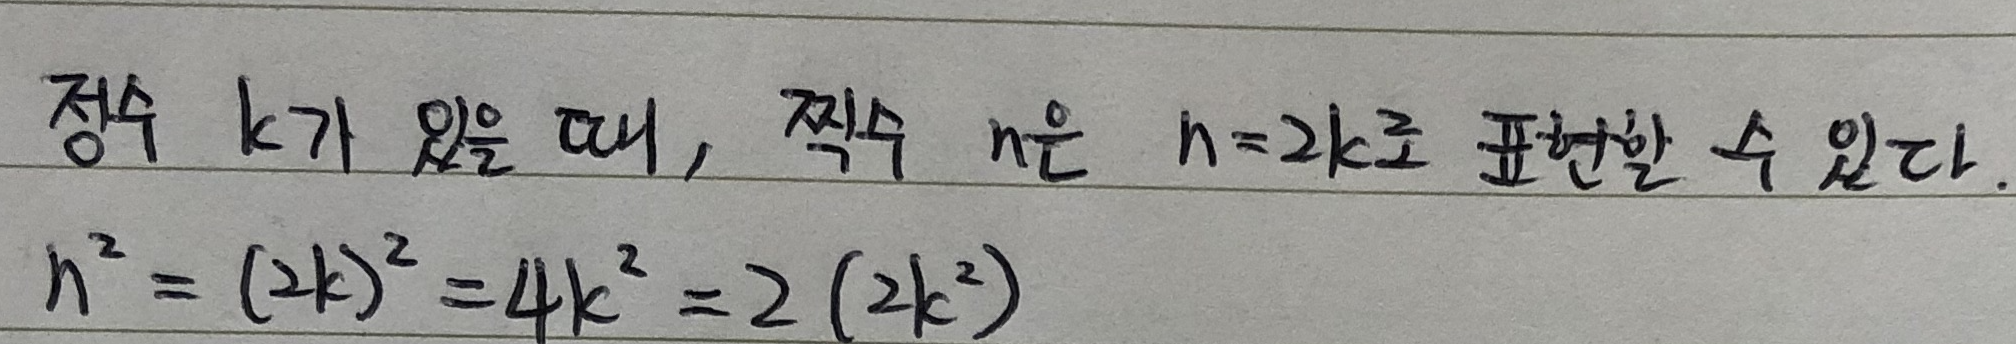 정수 k가 있을 때, 짝수 n은 n=2k로 표현할 수 있다.
n² = (2k)² = 4k² = 2(2k²)